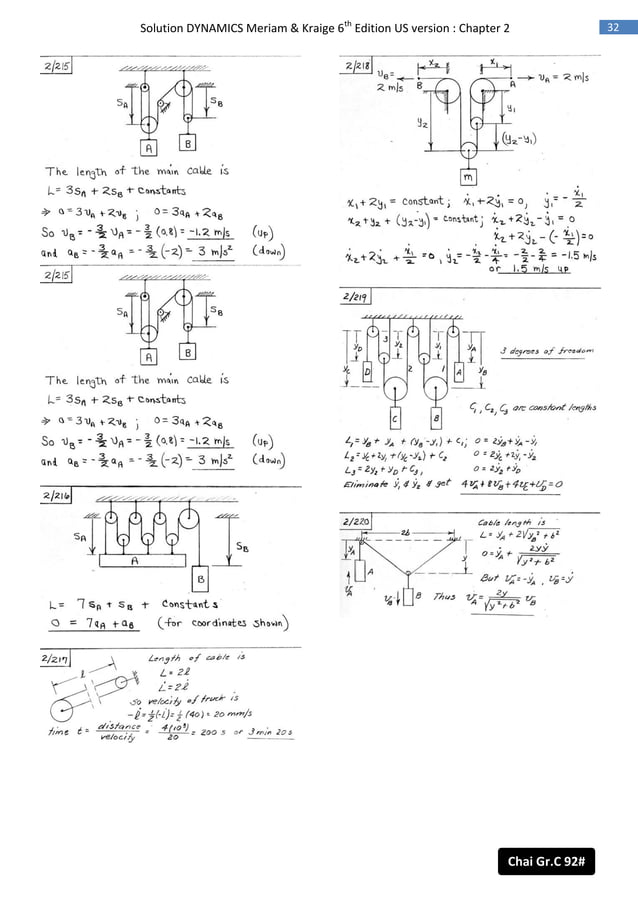 Solution DYNAMICS Meriam & Kraige 6th Edition US version : Chapter 2
32
2/215
SA
SB
A
B
The length of the main cable is
L = 3SA + 2SB + constants
⇒ 0 = 3vA + 2vB ; 0 = 3aA + 2aB
So vB = - 3/2 vA = - 3/2 (0.8) = -1.2 m/s (up)
and aB = - 3/2 aA = - 3/2 (-2) = 3 m/s² (down)
2/215
SA
SB
A
B
The length of the main cable is
L = 3SA + 2SB + constants
⇒ 0 = 3vA + 2vB ; 0 = 3aA + 2aB
So vB = - 3/2 vA = - 3/2 (0.8) = -1.2 m/s (up)
and aB = - 3/2 aA = - 3/2 (-2) = 3 m/s² (down)
2/216
SA
SB
A
B
L = 7SA + SB + constants
0 = 7aA + aB (for coordinates shown)
2/217
l
Length of cable is
L = 2l
L̇ = 2l̇
So velocity of truck is
-l̇ = ½(-L̇) = ½ (40) = 20 mm/s
time t = distance/velocity = 4(10³)/20 = 200 s or 3 min 20 s
2/218
x2
x1
vB = 2 m/s
B
A
vA = 2 m/s
y1
y2
(y2-y1)
m
x1 + 2y1 = constant ; ẋ1 + 2ẏ1 = 0, ẏ1 = - ẋ1/2
x2 + y2 + (y2-y1) = constant ; ẋ2 + 2ẏ2 - ẏ1 = 0
ẋ2 + 2ẏ2 - (- ẋ1/2) = 0
ẋ2 + 2ẏ2 + ẋ1/2 = 0, ẏ2 = - ẋ2/2 - ẋ1/4 = - 2/2 - 2/4 = -1.5 m/s
or 1.5 m/s up
2/219
yD
3
y2
y1
yA
yC
D
2
1
A
yB
C
B
3 degrees of freedom
C1, C2, C3 are constant lengths
L1 = yB + yA + (yB-y1) + C1 ; 0 = 2ẏB + ẏA - ẏ1
L2 = yC + 2y1 + (yC-y2) + C2 0 = 2ẏC + 2ẏ1 - ẏ2
L3 = 2y2 + yD + C3, 0 = 2ẏ2 + ẏD
Eliminate ẏ1 & ẏ2 & get 4vA + 8vB + 4vC + vD = 0
2/220
2b
yA
y
A
vA
vB
B
Cable length is
L = yA + 2√(y² + b²)
0 = ẏA + 2yẏ/√(y² + b²)
But vA = -ẏA, vB = ẏ
Thus vA = 2y/√(y² + b²) vB
Chai Gr.C 92#